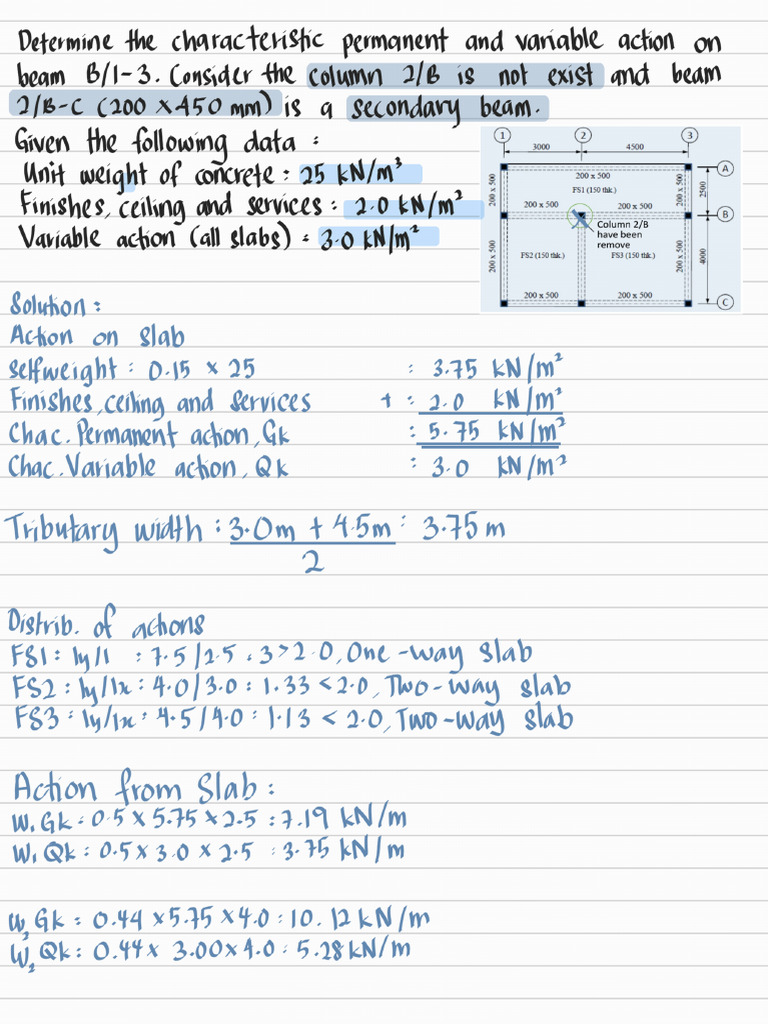 Determine the characteristic permanent and variable action on
beam B/1-3. Consider the column 2/B is not exist and beam
2/B-C (200 x 450 mm) is a secondary beam.
Given the following data :
Unit weight of concrete : 25 kN/m³
Finishes, ceiling and services : 2.0 kN/m²
Variable action (all slabs) = 3.0 kN/m²
1 2 3
3000 4500
200 x 500
FS1 (150 thk.)
200 x 500 200 x 500
200 x 500 200 x 500
A
2500
B
Column 2/B
have been
remove
FS2 (150 thk.) FS3 (150 thk.)
200 x 500 200 x 500
4000
200 x 500 200 x 500
C
Solution :
Action on slab
Selfweight : 0.15 x 25 : 3.75 kN/m²
Finishes, ceiling and services + : 2.0 kN/m²
Chac. Permanent action, Gk : 5.75 kN/m²
Chac. Variable action, Qk : 3.0 kN/m²
Tributary width : 3.0m + 4.5m : 3.75 m
2
Distrib. of actions
FS1 : ly/l : 7.5/2.5 : 3 > 2.0, One-way slab
FS2 : ly/lx : 4.0/3.0 : 1.33 < 2.0, Two-way slab
FS3 : ly/lx : 4.5/4.0 : 1.13 < 2.0, Two-way slab
Action from Slab :
W₁ Gk : 0.5 x 5.75 x 2.5 : 7.19 kN/m
W₁ Qk : 0.5 x 3.0 x 2.5 : 3.75 kN/m
W₂ Gk : 0.44 x 5.75 x 4.0 : 10.12 kN/m
W₂ Qk : 0.44 x 3.00 x 4.0 : 5.28 kN/m